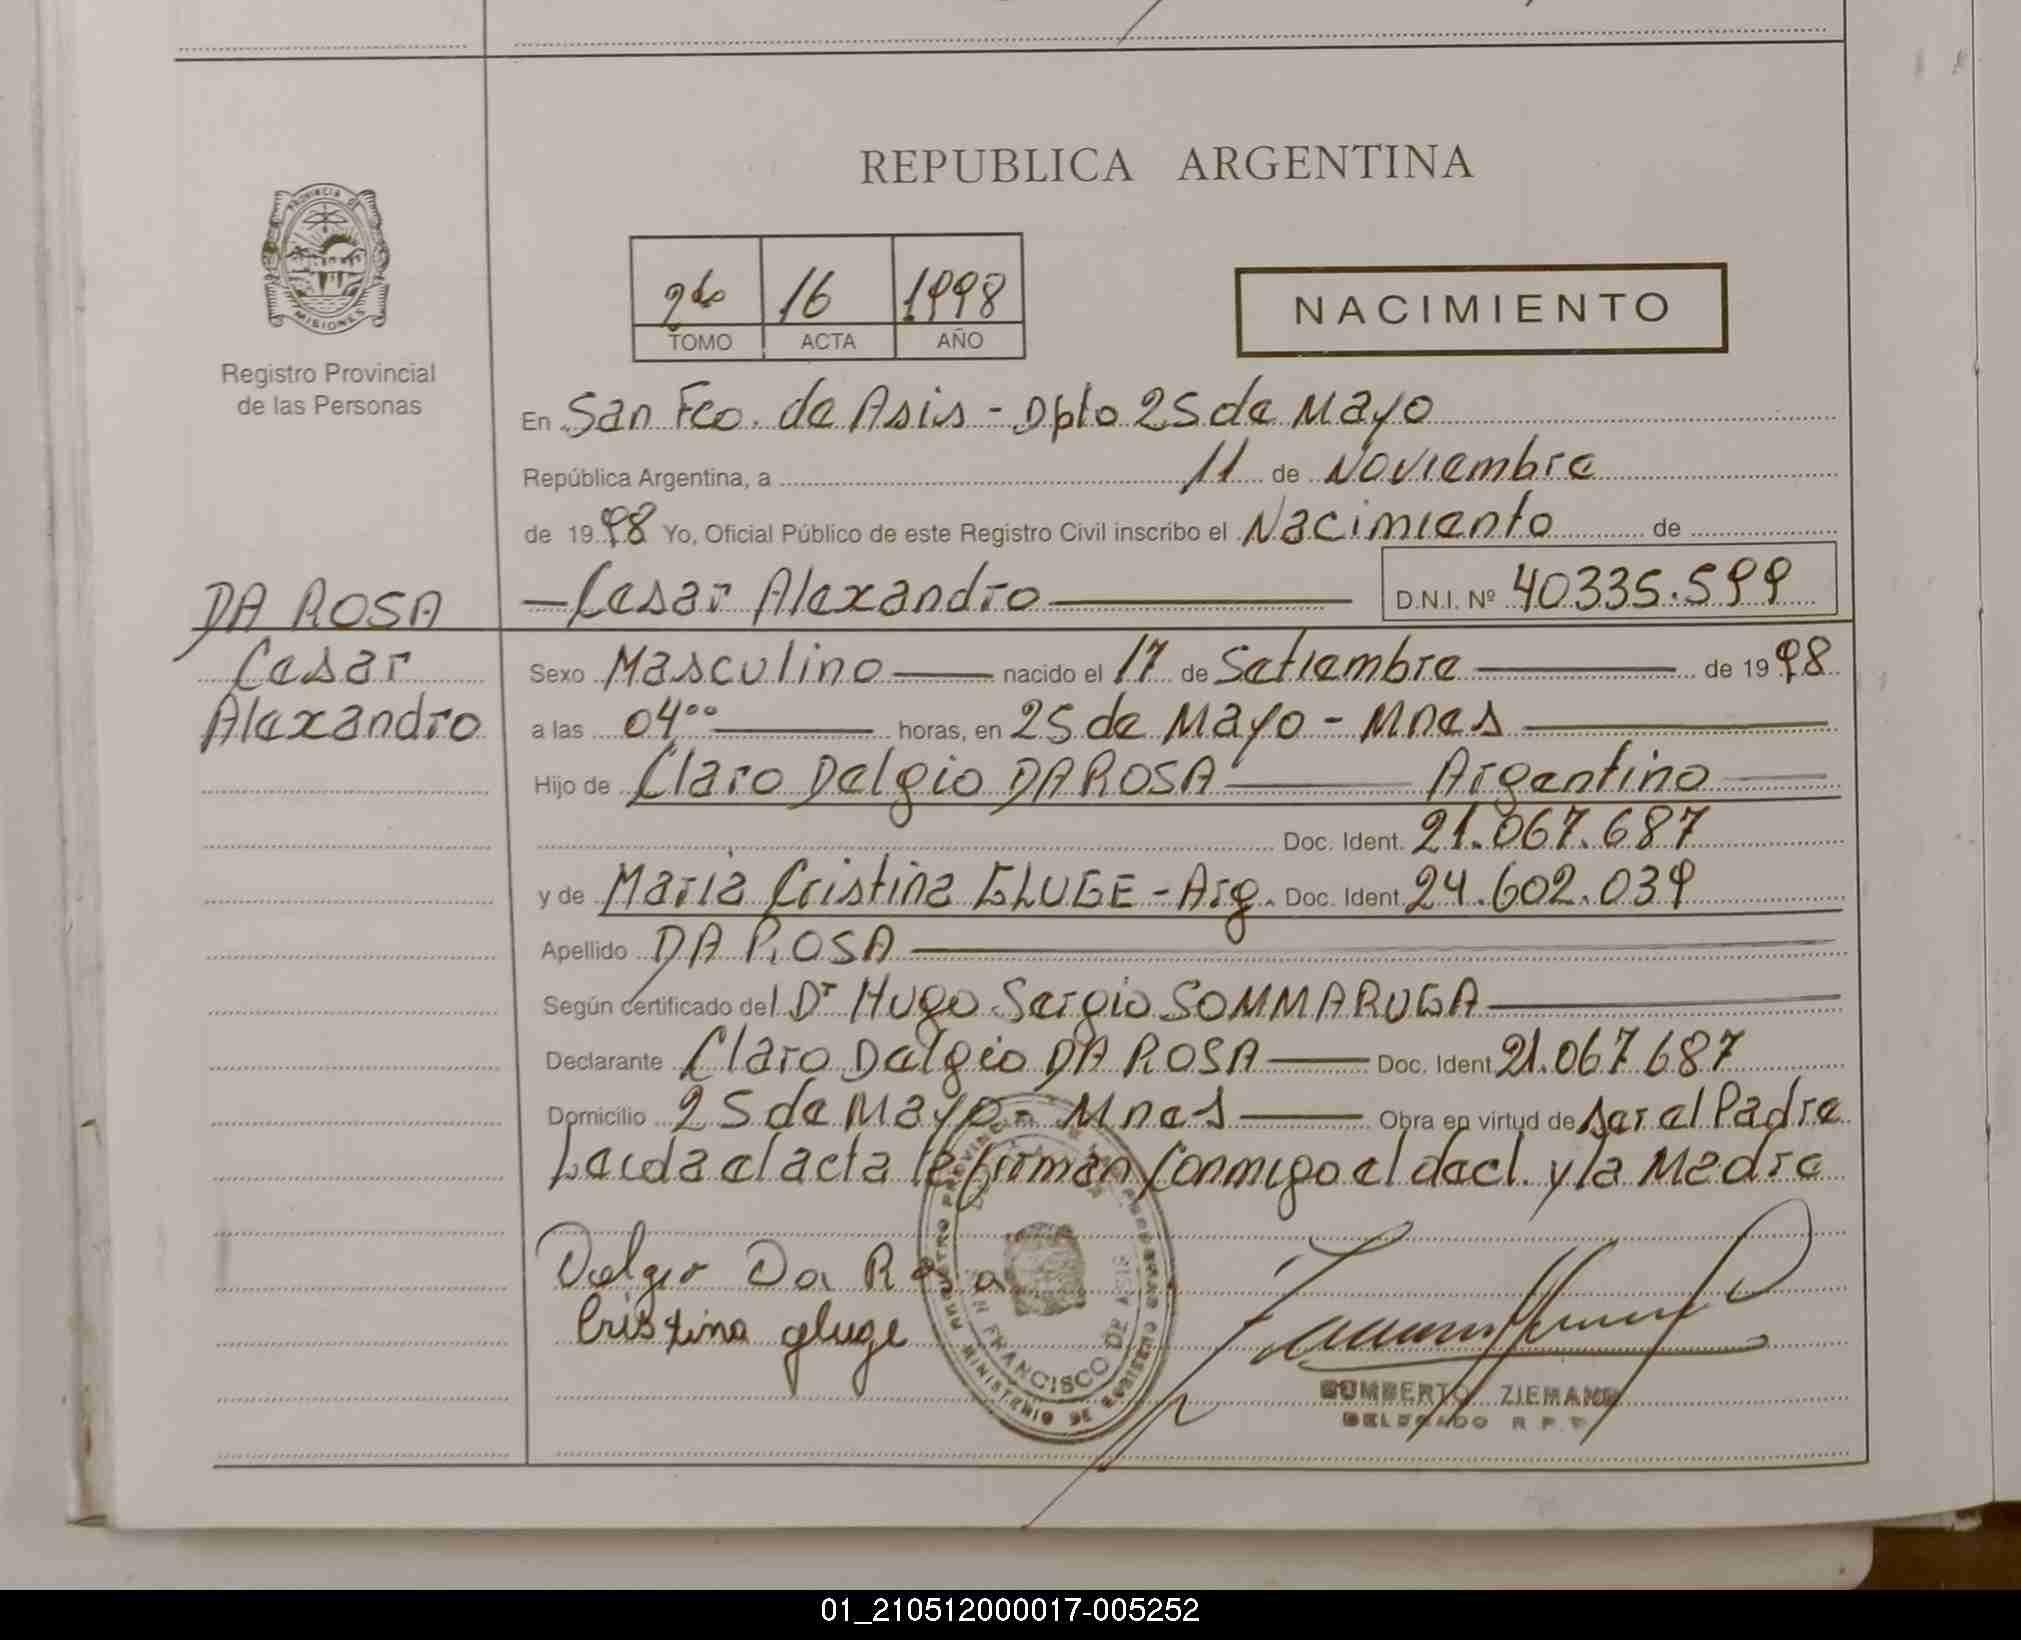 REPUBLICA ARGENTINA
PROVINCIA DE
MISIONES
Registro Provincial
de las Personas
2do 16 1998
TOMO ACTA AÑO
NACIMIENTO
En San Fco. de Asis - Dpto 25 de Mayo
República Argentina, a 11 de Noviembre
de 1998 Yo, Oficial Público de este Registro Civil inscribo el Nacimiento de
DA ROSA
Cesar
Alexandro
— Cesar Alexandro — D.N.I. Nº 40335.599
Sexo Masculino — nacido el 17 de Setiembre — de 1998
a las 04°° — horas, en 25 de Mayo - Mnes —
Hijo de Claro Delgio DA ROSA — Argentino —
Doc. Ident. 21.067.687
y de Maria Cristina GLUGE - Arg. Doc. Ident 24.602.039
Apellido DA ROSA —
Según certificado del Dr Hugo Sergio SOMMARUGA —
Declarante Claro Delgio DA ROSA — Doc. Ident 21.067.687
Domicilio 25 de Mayo - Mnes — Obra en virtud de ser el Padre
Leida el acta le firman conmigo el decl. y la Madre
Delgio Da Rosa
Cristina gluge
SAN FRANCISCO DE ASIS
MINISTERIO DE
HUMBERTO ZIEMANN
DELEGADO R.P.P.
01_210512000017-005252